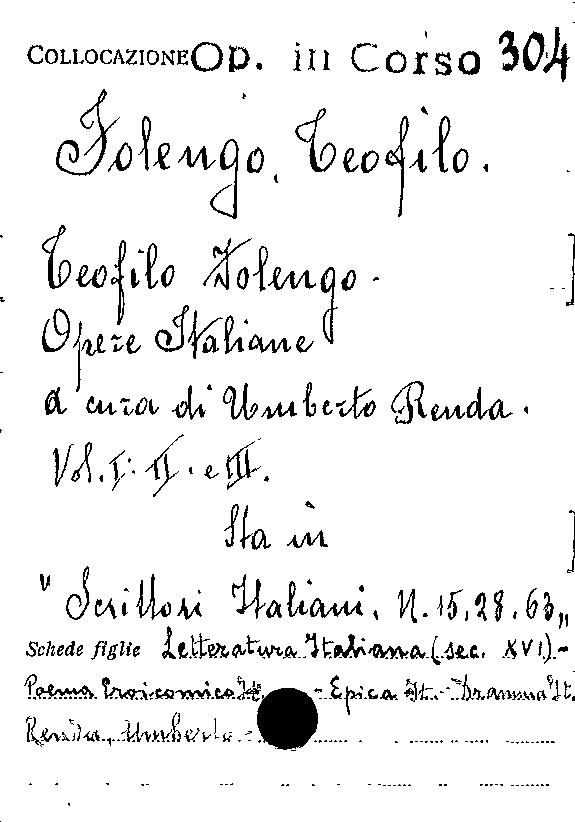 COLLOCAZIONE Op. in Corso 304
Folengo, Teofilo.
Teofilo Folengo.
Opere Italiane
a cura di Umberto Renda.
Vol. I. II. e III.
Sta in
"Scrittori Italiani, N. 15, 28, 63„
Schede figlie Letteratura Italiana (sec. XVI) -
Poema Eroicomico It. - Epica It. - Dramma It.
Renda, Umberto.